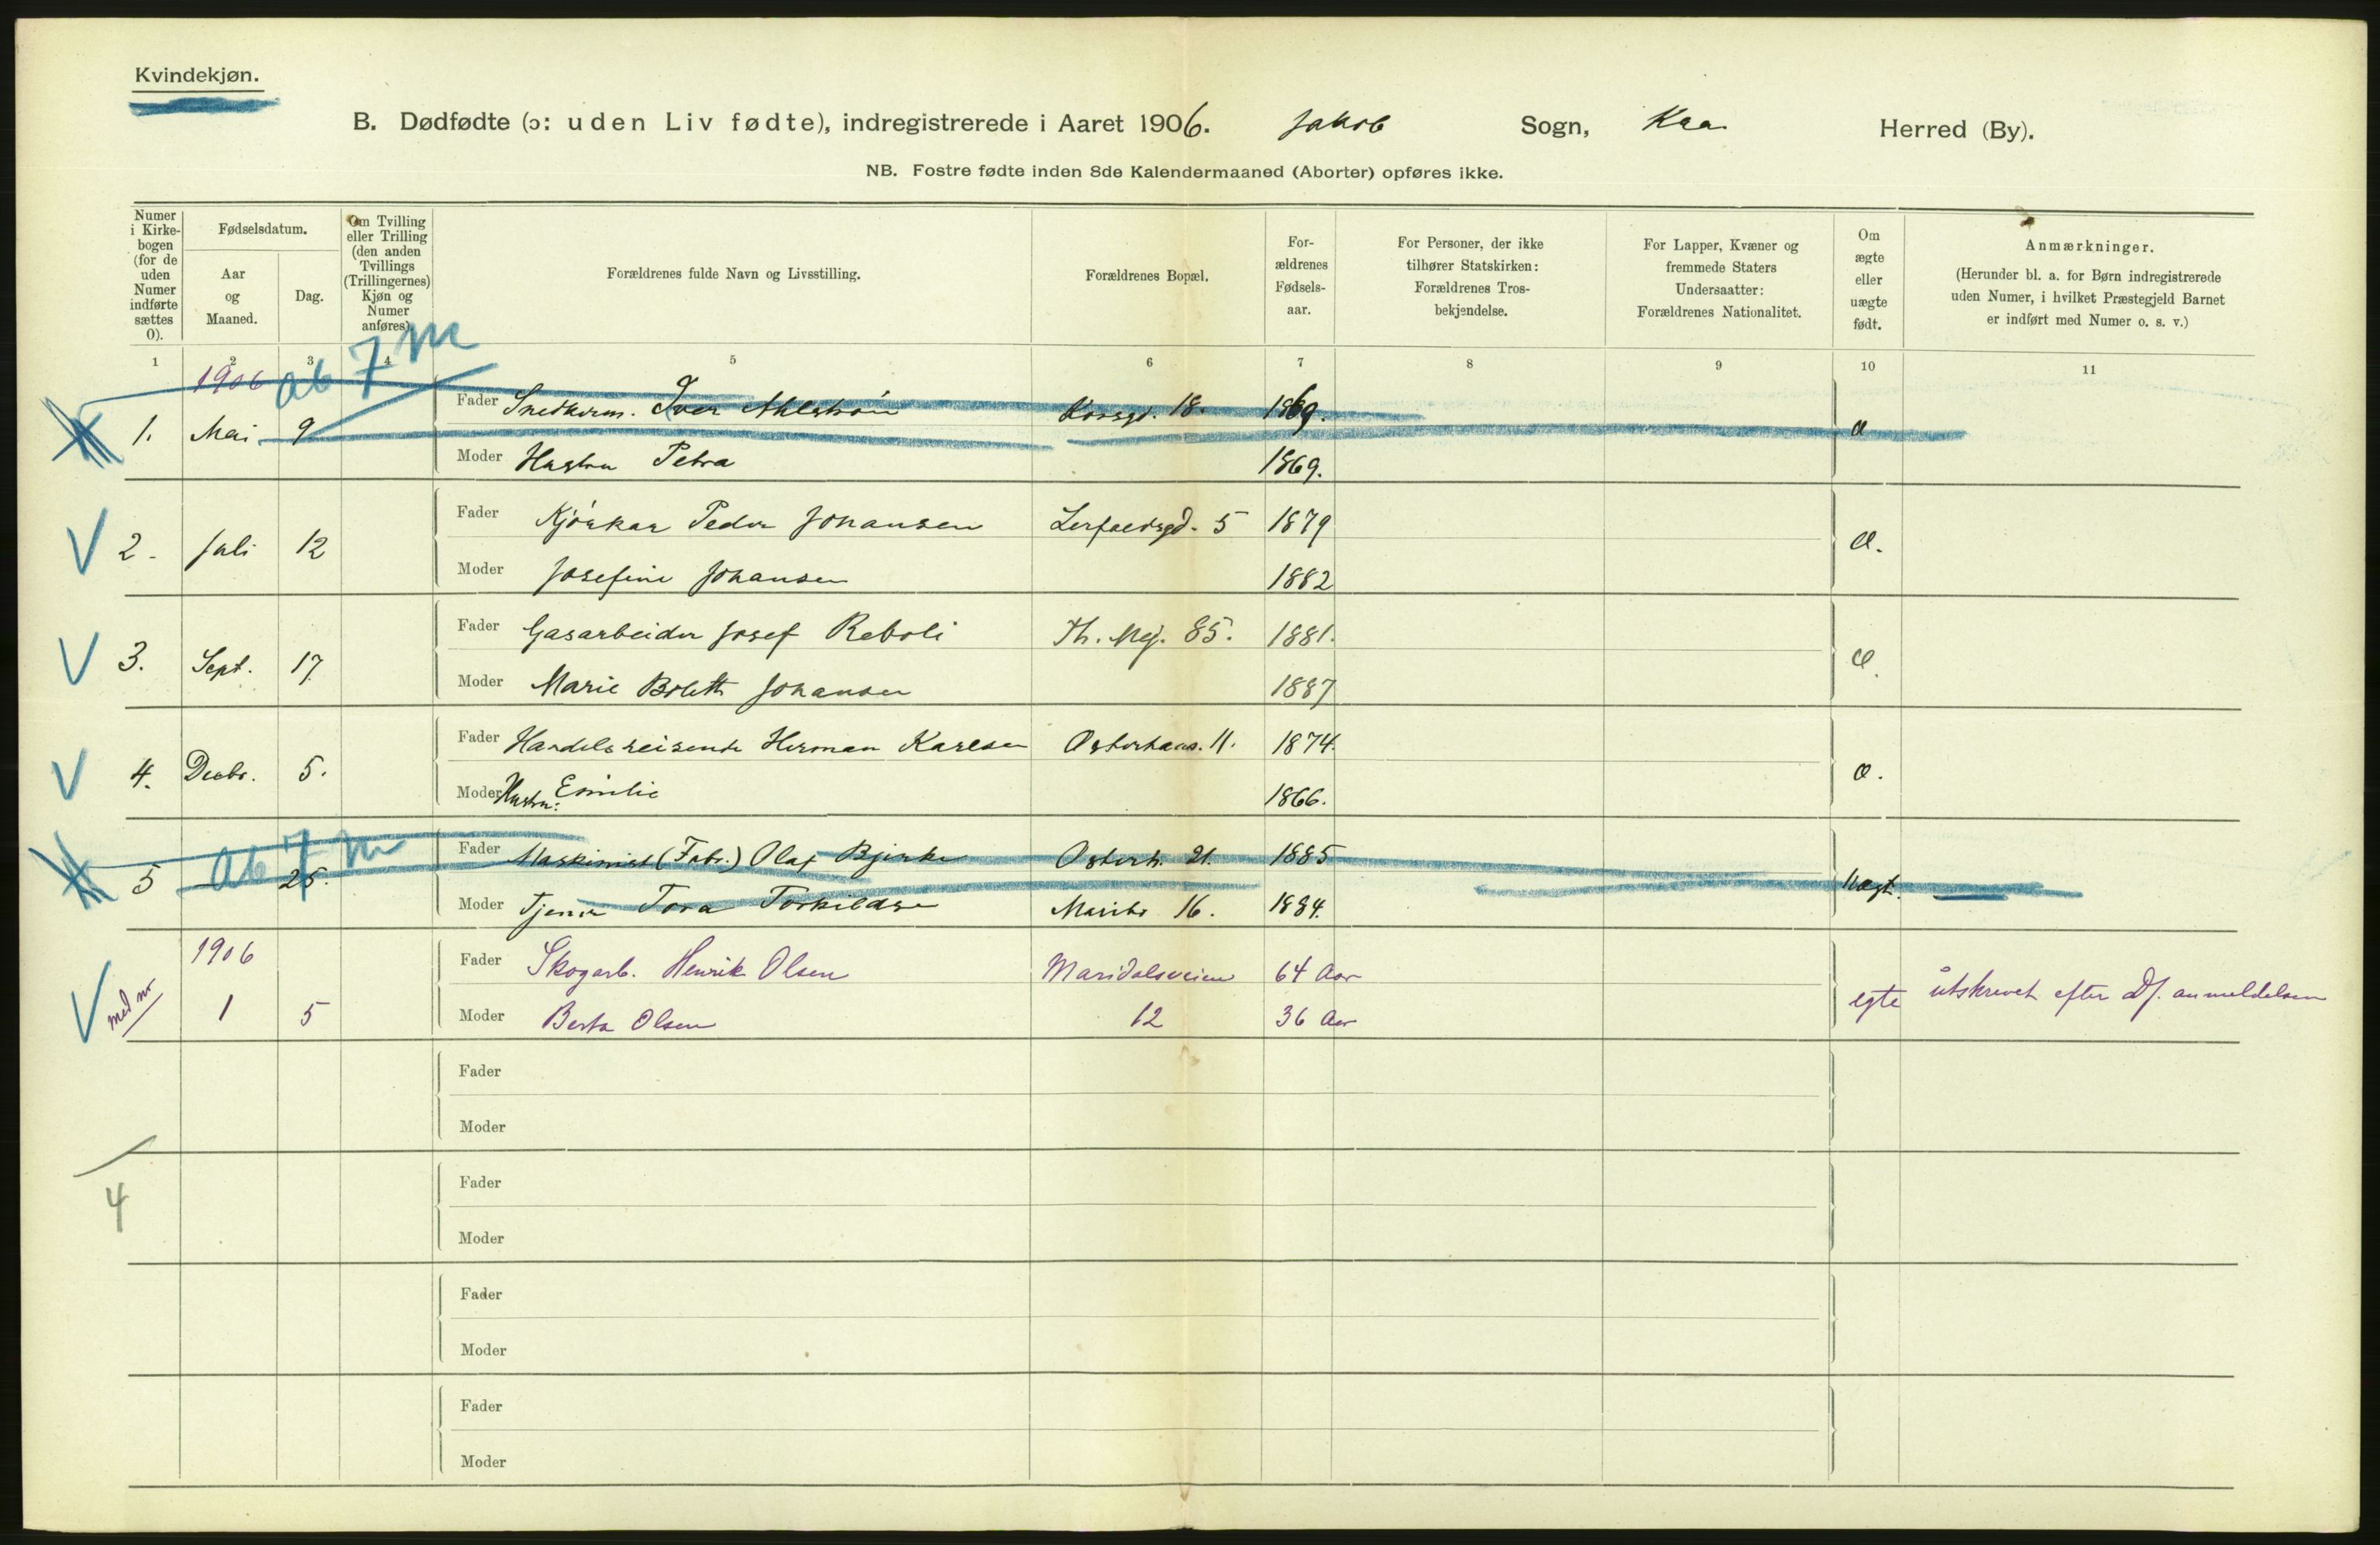 Kvindekjøn.
B. Dødfødte (ɔ: uden Liv fødte), indregistrerede i Aaret 1906. Jakob Sogn, Kra. Herred (By).
NB. Fostre fødte inden 8de Kalendermaaned (Aborter) opføres ikke.
Numer i Kirkebogen (for de uden Numer indførte sættes 0).
Fødselsdatum.
Aar og Maaned.
Dag.
Om Tvilling eller Trilling (den anden Tvillings (Trillingernes) Kjøn og Numer anføres).
Forældrenes fulde Navn og Livsstilling.
Forældrenes Bopæl.
Forældrenes Fødselsaar.
For Personer, der ikke tilhører Statskirken: Forældrenes Trosbekjendelse.
For Lapper, Kvæner og fremmede Staters Undersaatter: Forældrenes Nationalitet.
Om ægte eller uægte født.
Anmærkninger.
(Herunder bl. a. for Børn indregistrerede uden Numer, i hvilket Præstegjeld Barnet er indført med Numer o. s. v.)
1 2 3 4 5 6 7 8 9 10 11
1906 ab 7 m
1. Mai 9 Fader Snedkerm. Iver Ahlstrøm Korsgd. 18. 1869.
Moder Hustru Petra 1869.
2. Juli 12 Fader Kjørkar Peder Johansen 5 1879
Moder Josefine Johansen 1882
3. Sept. 17 Fader Gasarbeider Josef Reboli Th. Mej. 85. 1881.
Moder Marie Bolett Johansen 1887
4. Decbr. 5. Fader Handelsreisende Herman Karlsen Osterhaus. 11. 1874.
Moder Hustru: Emilie 1866.
5 — ab 7 m 25. Fader Maskinist (Fabr.) Olaf Bjerke Osterh. 21. 1885 Uægt.
Moder Tjener Tora Torkildsen Maribo 16. 1884.
med nr 1906
1 5 Fader Skogarb. Henrik Olsen Maridalsveien 64 Aar
Moder Berta Olsen 12 36 Aar egte utskrevet efter Df. anmeldelsen
Fader
Moder
4
Fader
Moder
Fader
Moder
Fader
Moder